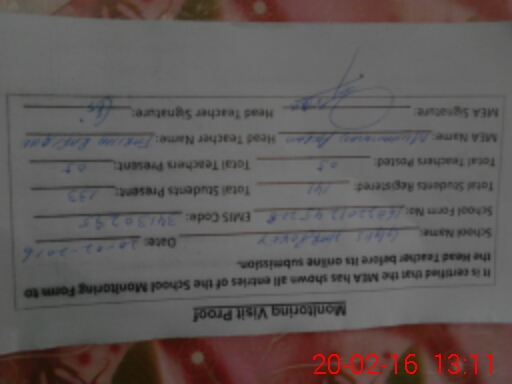 Monitoring Visit Proof
It is certified that the MEA has shown all entries of the School Monitoring Form to
the Head Teacher before its online submission.
School Name: Date: 20-02-2016
School Form No: EMIS Code: 34130295
Total Students Registered: 141 Total Students Present: 133
Total Teachers Posted: 05 Total Teachers Present: 05
MEA Name: Muhammad Head Teacher Name:
MEA Signature: Head Teacher Signature:
20-02-16 13:11